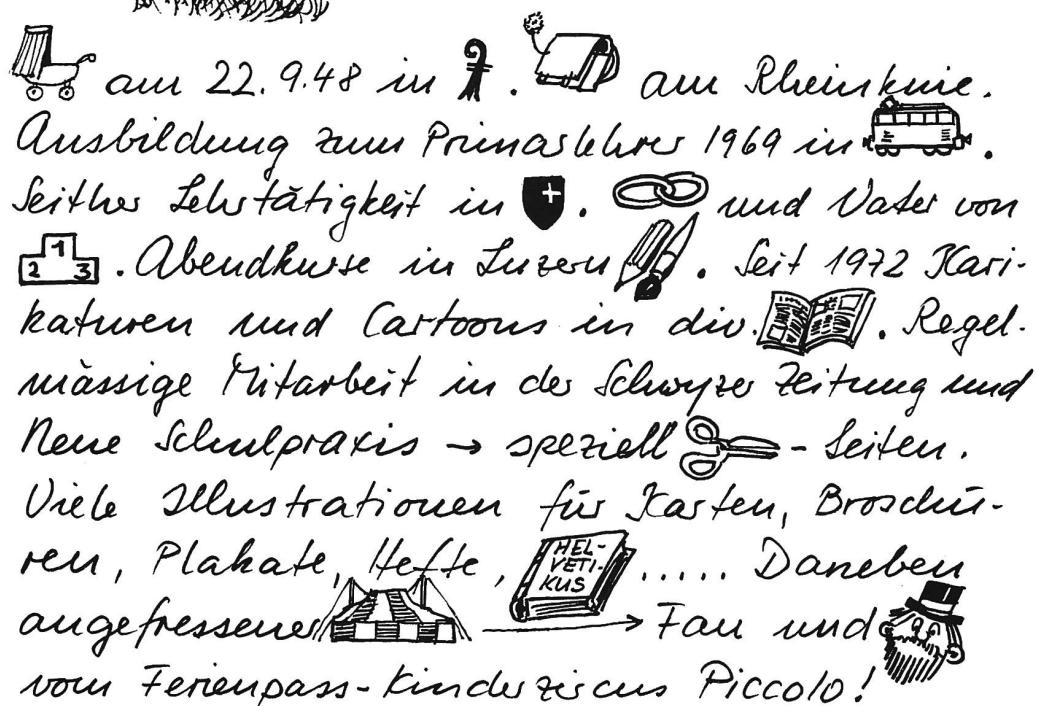 am 22.9.48 in . am Rheinknie.
Ausbildung zum Primarlehrer 1969 in .
Seither Lehrtätigkeit in . und Vater von
1 2 3 . Abendkurse in Luzern . Seit 1972 Kari-
katuren und Cartoons in div. . Regel-
mässige Mitarbeit in der Schwyzer Zeitung und
Neue Schulpraxis → speziell - Seiten.
Viele Illustrationen für Karten, Broschü-
ren, Plakate, Hefte, HEL-VETI-KUS ..... Daneben
angefressener → Fan und
vom Ferienpass-Kinderzircus Piccolo!